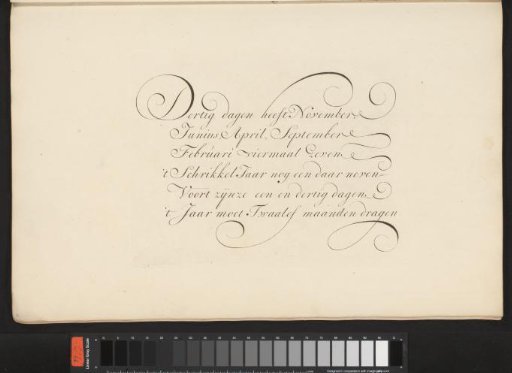 Dertig dagen heeft November
Junius April, September
Februari viermaal Zeven
't Schrikkel Jaar nog een daar neven
Voort zijnze een en dertig dagen
't Jaar moet Twaalef maanden dragen